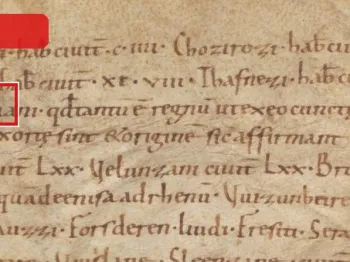 habent civit · c · iiii · Chozirozi · habent civi
habent civit · xc · viii · Thafnezi · habent c
ani · qd tantu e regnu ut ex eo cuncte
exorte sint & origine sic affirmant
vit Lxx · Velunzani civit Lxx · Bru
qua deenisa ad rhenu · Vurzunbeire
auzzi · Forsderen liudi · Fresiti · Sera